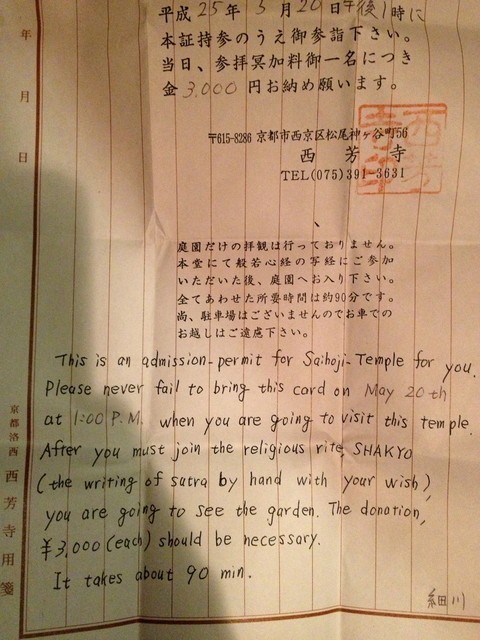 平成25年5月20日午後1時に
本証持参のうえ御参詣下さい。
当日、参拝冥加料御一名につき
金3,000円お納め願います。
〒615-8286 京都市西京区松尾神ヶ谷町56
西芳寺
TEL(075)391-3631
庭園だけの拝観は行っておりません。
本堂にて般若心経の写経にご参加
いただいた後、庭園へお入り下さい。
全てあわせた所要時間は約90分です。
尚、駐車場はございませんのでお車での
お越しはご遠慮下さい。
This is an admission-permit for Saihoji-Temple for you.
Please never fail to bring this card on May 20th
at 1:00 P.M. when you are going to visit this temple.
After you must join the religious rite, SHAKYO
(the writing of sutra by hand with your wish),
you are going to see the garden. The donation,
¥3,000 (each) should be necessary.
It takes about 90 min.
細川
年
月
日
京都洛西 西芳寺用箋